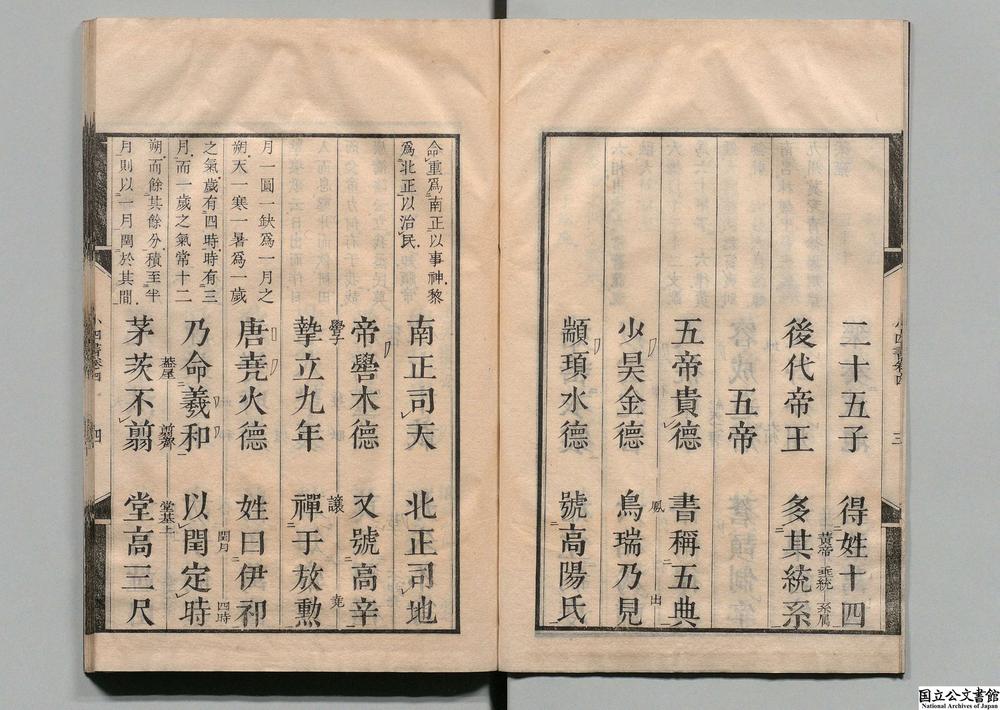 二十五子　得姓十四
黃帝　垂統　系屬
後代帝王　多其統系
五帝
五帝貴德　書稱五典
鳳　出
少昊金德　鳥瑞乃見
顓頊水德　號高陽氏
三
命重爲南正以事神黎
爲北正以治民
南正司天　北正司地
帝嚳木德　又號高辛
嚳子　讓　堯
摯立九年　禪于放勲
月一圓一缺爲一月之
朔天一寒一暑爲一歲
唐堯火德　姓曰伊祁
閏月　四時
之氣歲有四時時有三
月而一歲之氣常十二
乃命羲和　以閏定時
蓋屋　剪齊　堂基土
朔而餘其餘分積至半
月則以一月閏於其間
茅茨不翦　堂高三尺
小四書卷四
四
国立公文書館
National Archives of Japan